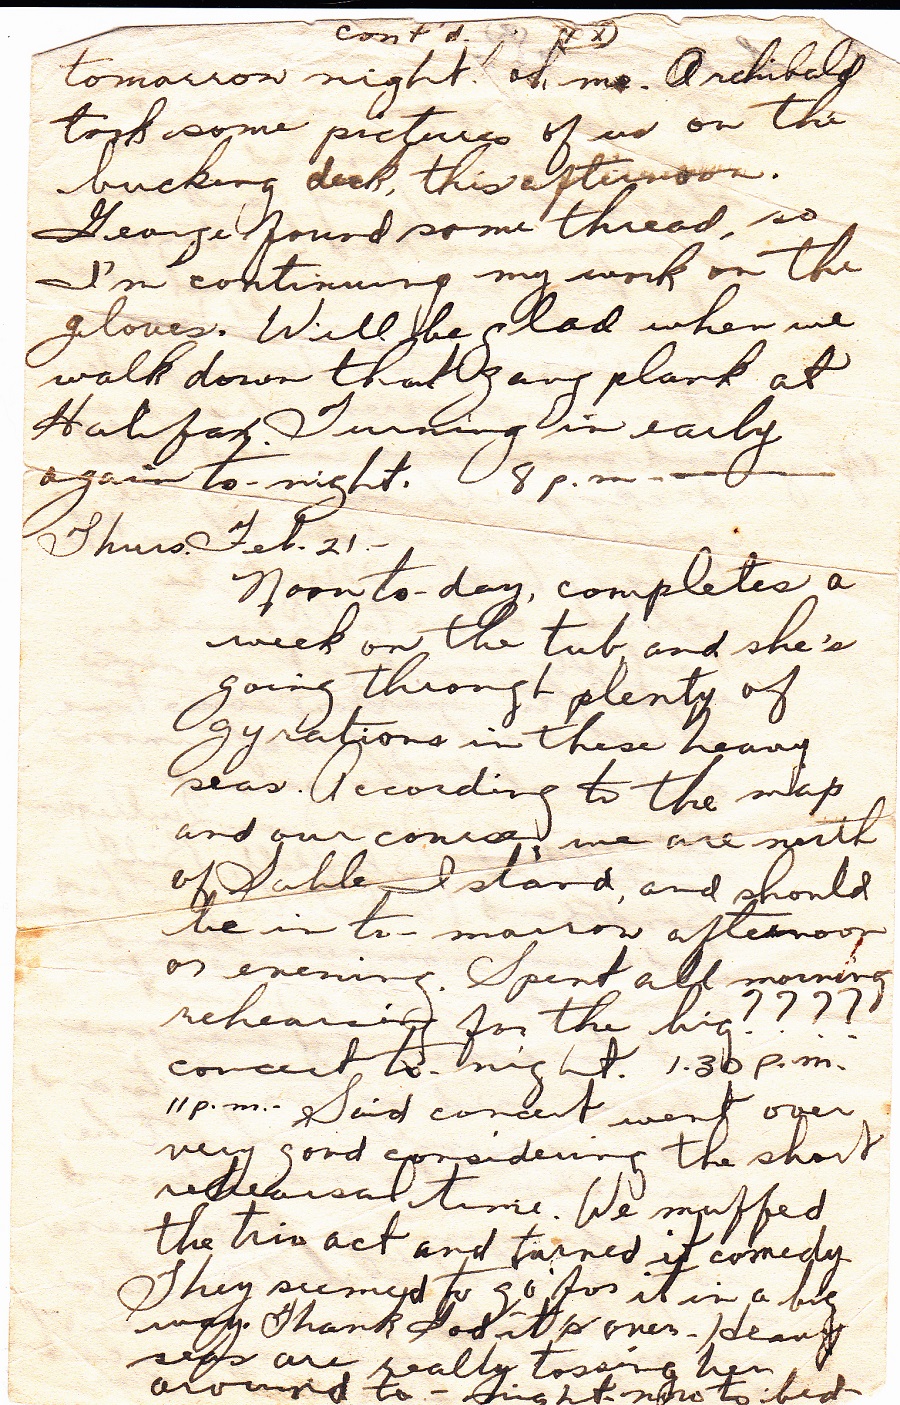 cont'd.
tomarrow night. oh me. Archibald
took some pictures of us on the
bucking deck, this afternoon.
George found some thread, so
I'm continuing my work on the
gloves. Will be glad when we
walk down that gang plank at
Halifax. Turning in early
again to-night. 8 p.m.
Thurs. Feb. 21.-
Noon to-day, completes a
week on the tub, and she's
going through plenty of
gyrations in these heavy
seas. According to the map
and our course, we are north
of Sable Island, and should
be in to-marrow afternoon
or evening. Spent all morning
rehearsing for the big?????
concert to-night. 1.30 p.m.
11 p.m.- Said concert went over
very good considering the short
rehearsal time. We muffed
the trio act and turned it comedy
They seemed to go for it in a big
way. Thank God it's over. Heavy
seas are really tossing her
around to-night - now to bed